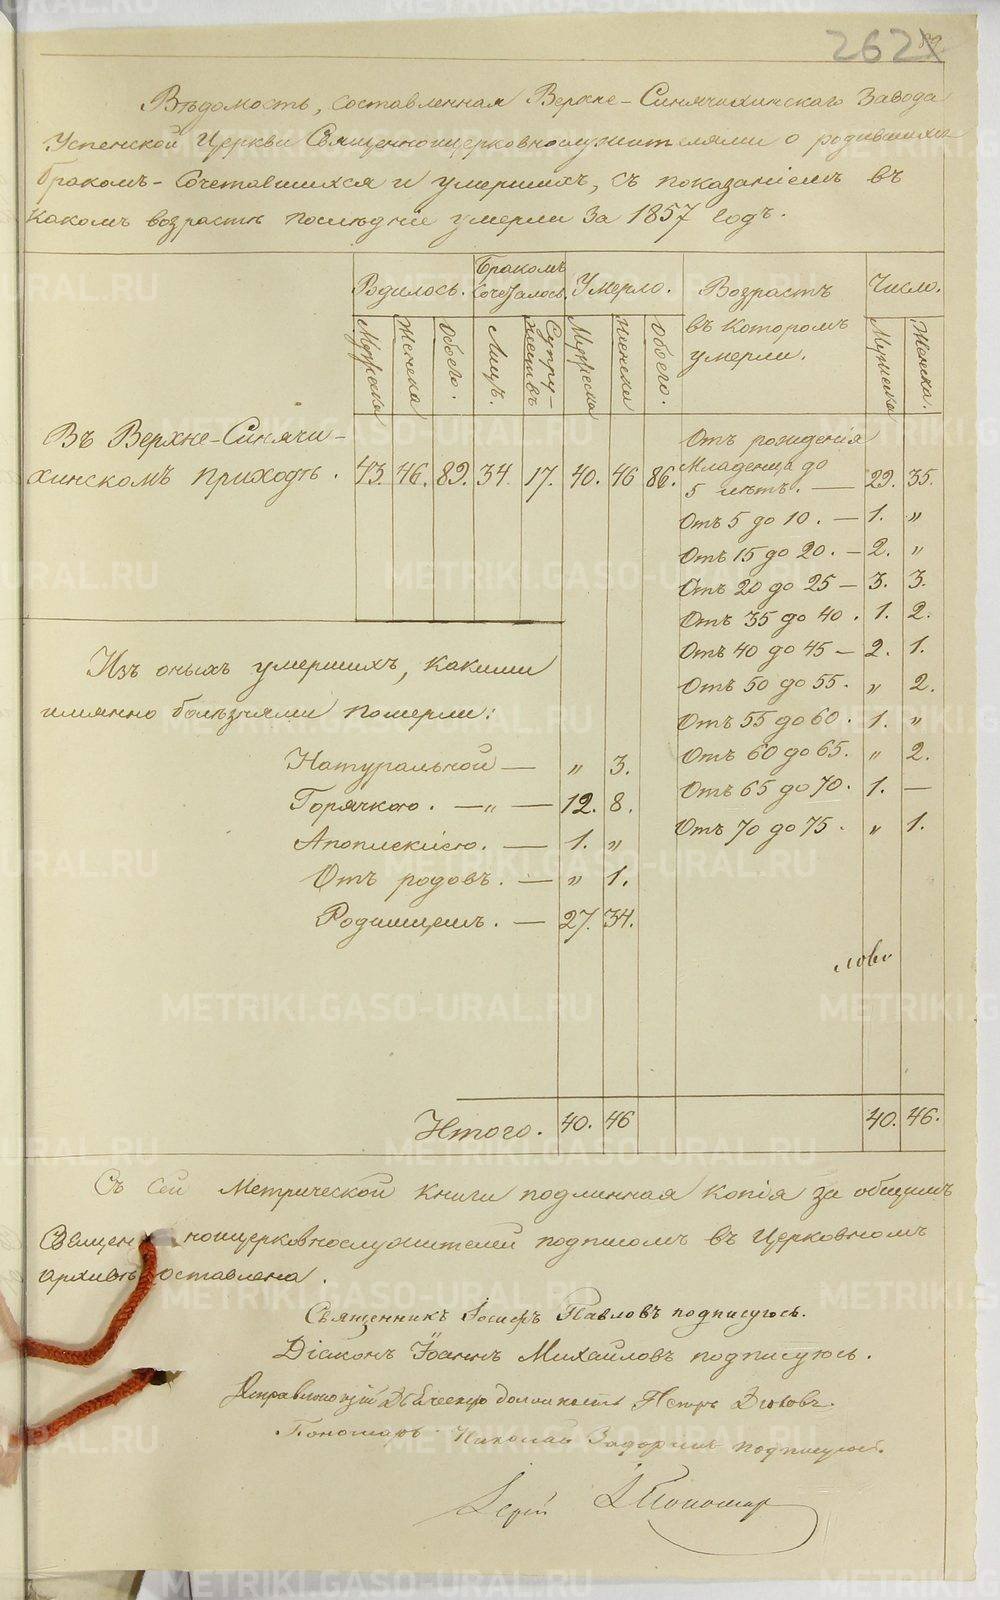 262
Вѣдомость, составленная Верхне-Синячихинскаго Завода
Успенской Церкви Священноцерковнослужителями о родившихся
бракомъ-сочетавшихся и умершихъ, съ показаніемъ въ
какомъ возрастѣ послѣдніе умерли за 1857 годъ.
Родилось. Бракомъ сочеталось. Умерло. Возрастъ въ которомъ умерли. Число.
Мужеска Женска Обоего. Лицъ. Супружествъ Мужеска Женска Обоего. Мужеска Женска.
Въ Верхне-Синячи-
хинскомъ приходѣ. 43. 46. 89. 34. 17. 40. 46 86.
Отъ рожденія
Младенца до
5 лѣтъ. — 29. 35.
Отъ 5 до 10. — 1. "
Отъ 15 до 20. — 2. "
Отъ 20 до 25 — 3. 3.
Отъ 35 до 40. 1. 2.
Отъ 40 до 45 — 2. 1.
Отъ 50 до 55. " 2.
Отъ 55 до 60. 1. "
Отъ 60 до 65. " 2.
Отъ 65 до 70. 1. —
Отъ 70 до 75. " 1.
Изъ оныхъ умершихъ, какими
имянно болѣзнями померли:
Натуральной — " 3.
Горячкою. — " — 12. 8.
Апоплексіею. — 1. "
Отъ родовъ. — " 1.
Родимцемъ. — 27. 34.
Итого. 40. 46 40. 46.
Съ сей Метрической книги подлинная копія за общимъ
Священноцерковнослужителей подписомъ въ Церковномъ
архивѣ оставлена.
Священникъ Іосифъ Павловъ подписуюсь.
Діаконъ Іоаннъ Михайловъ подписуюсь.
Исправляющій Дьяческую должность Петръ
Пономарь Николай подписуюсь.
METRIKI.GASO-URAL.RU